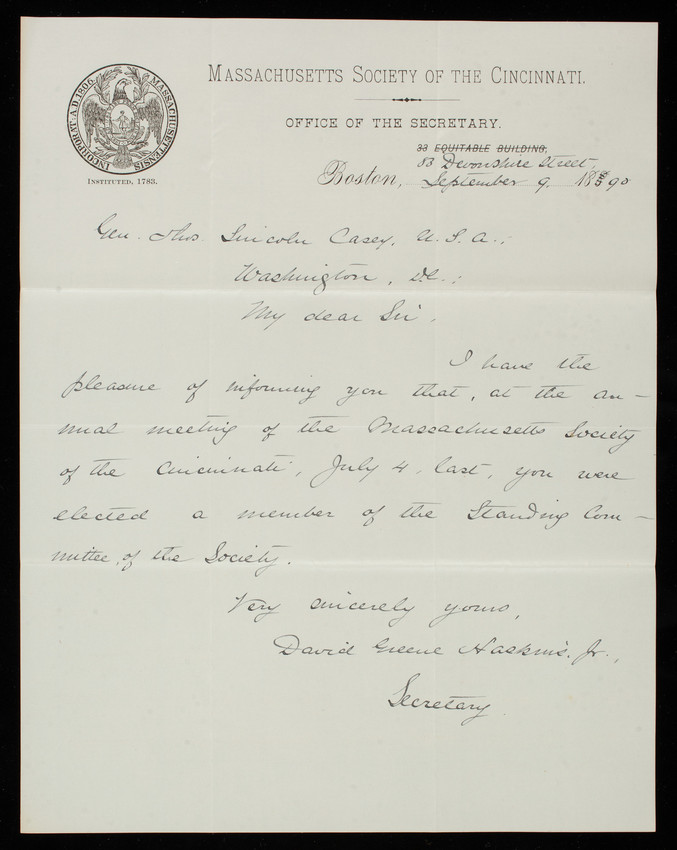 MASSACHUSETTS SOCIETY OF THE CINCINNATI.
OFFICE OF THE SECRETARY.
INCORPORAT. A.D. 1806. MASSACHUSETTENSIS
INSTITUTED, 1783.
33 EQUITABLE BUILDING,
83 Devonshire Street,
Boston, September 9, 1890
Gen. Thos. Lincoln Casey, U.S.A.;
Washington, D.C.;
My dear Sir,
I have the
pleasure of informing you that, at the an-
nual meeting of the Massachusetts Society
of the Cincinnati, July 4, last, you were
elected a member of the Standing Com-
mittee, of the Society.
Very sincerely yours,
David Greene Haskins, Jr.,
Secretary.